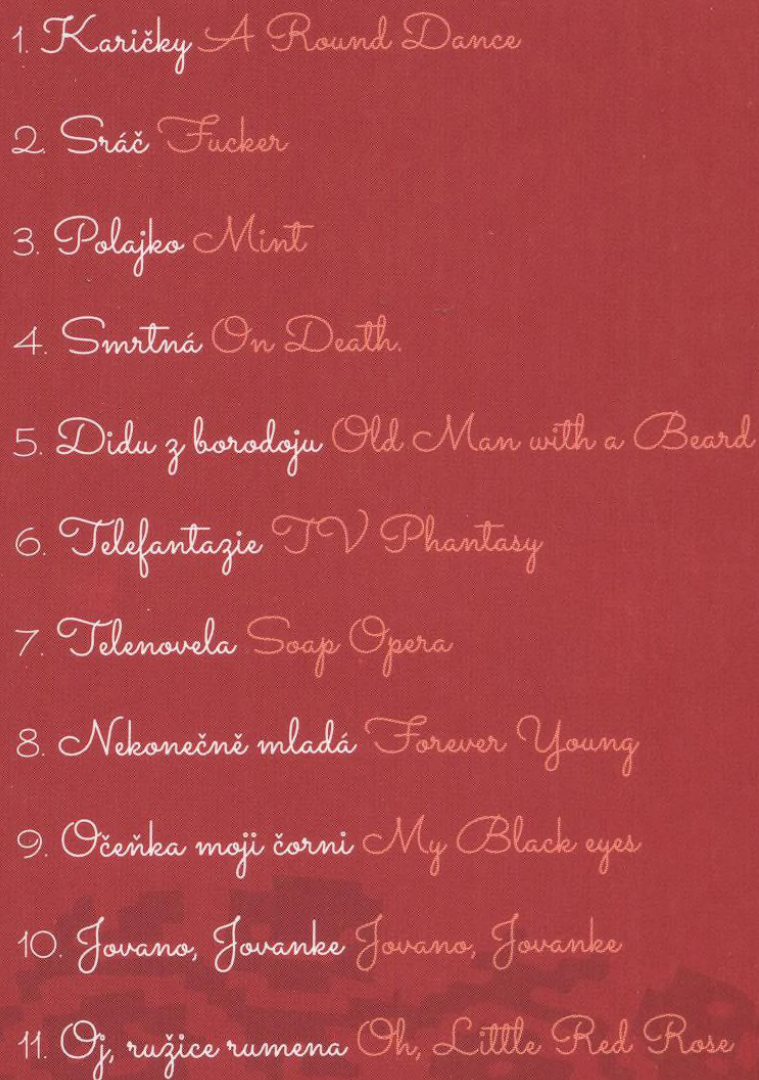 1. Karičky A Round Dance
2. Sráč Fucker
3. Polajko Mint
4. Smrtná On Death.
5. Didu z borodoju Old Man with a Beard
6. Telefantazie TV Phantasy
7. Telenovela Soap Opera
8. Nekonečně mladá Forever Young
9. Očeňka moji čorni My Black eyes
10. Jovano, Jovanke Jovano, Jovanke
11. Oj, ružice rumena Oh, Little Red Rose